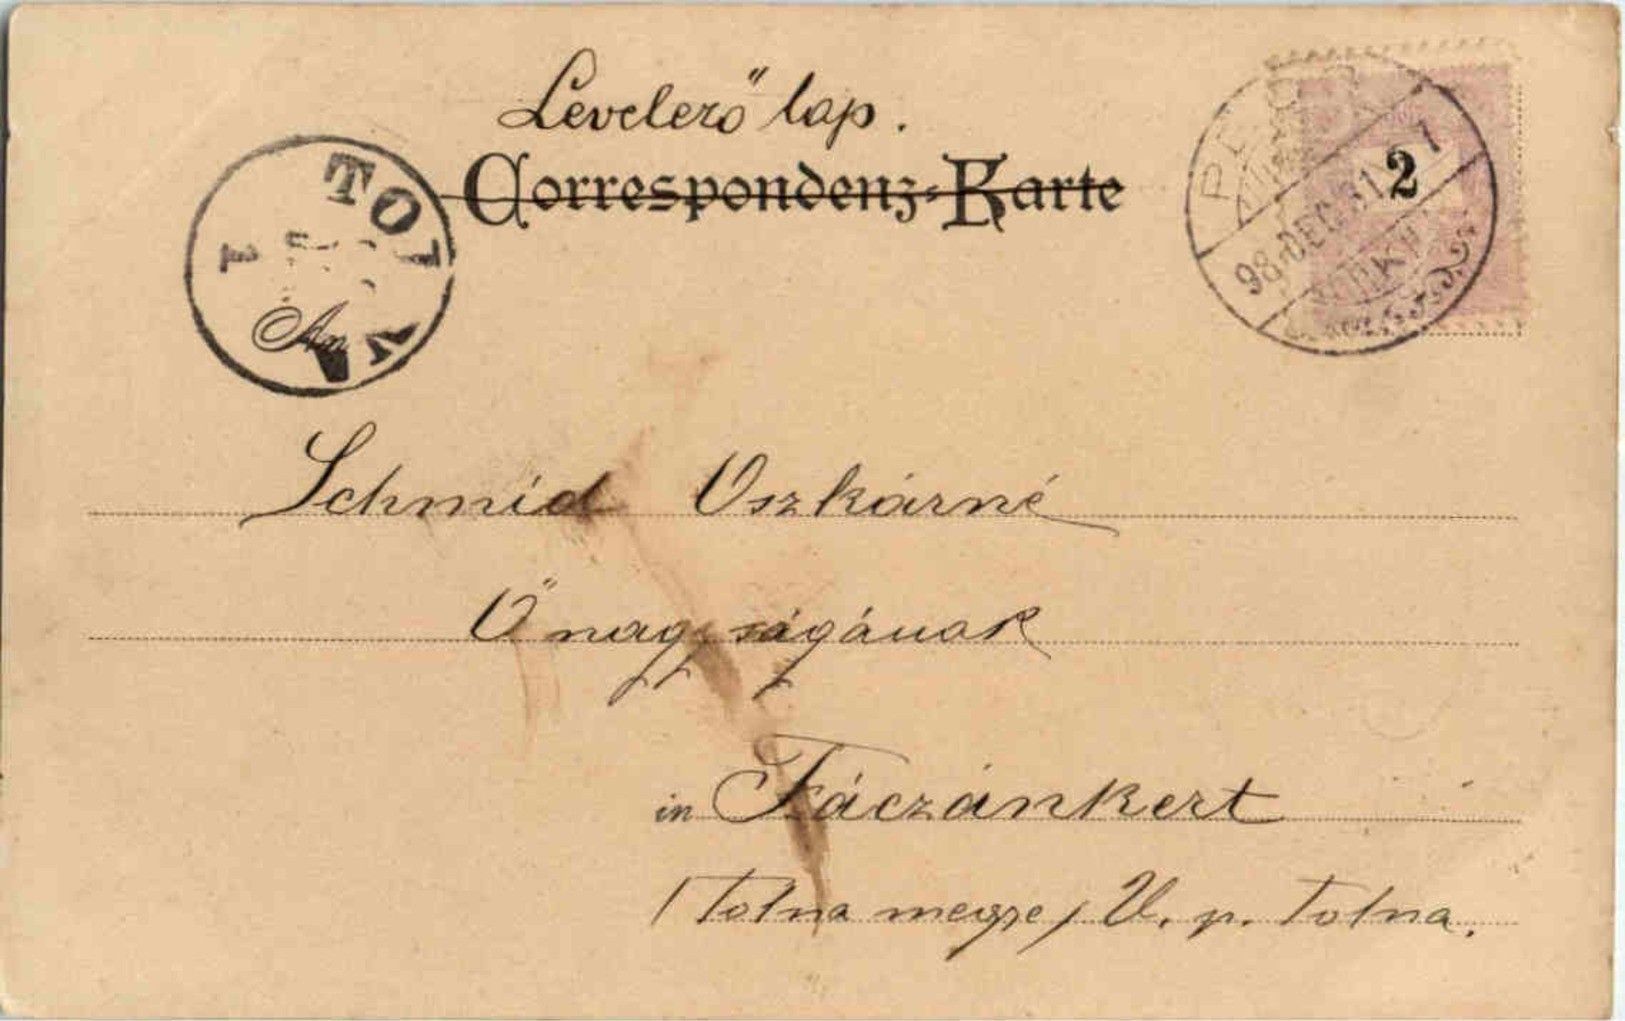 Levelező lap.
Correspondenz-Karte
TOLNA
98 DEC 31
2
An
Schmid Oszkárné
Őnagyságának
in Fáczánkert
/Tolna megye/ U. p. Tolna.